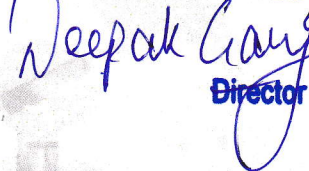 Deepak Garg
Director